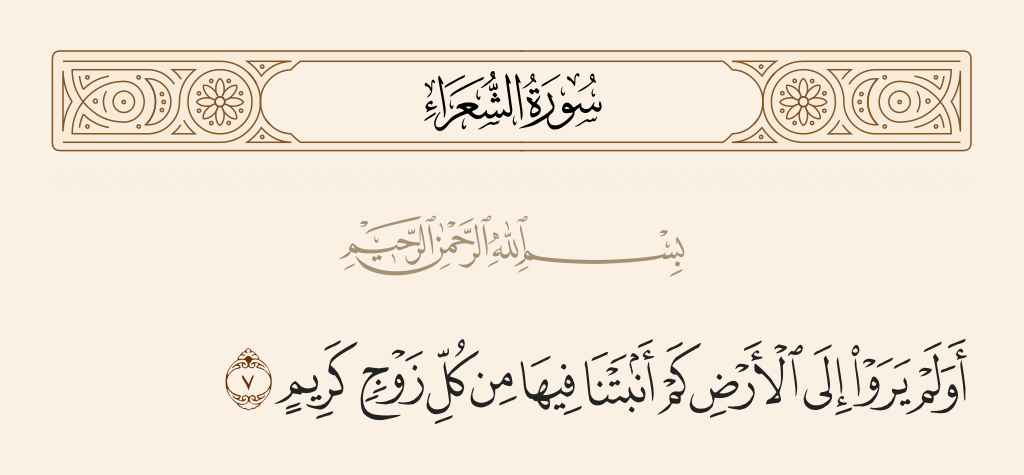 سُورَةُ الشُّعَرَاءِ
بِسْمِ ٱللَّهِ ٱلرَّحْمَٰنِ ٱلرَّحِيمِ
أَوَلَمْ يَرَوْا۟ إِلَى ٱلْأَرْضِ كَمْ أَنۢبَتْنَا فِيهَا مِن كُلِّ زَوْجٍ كَرِيمٍ ٧